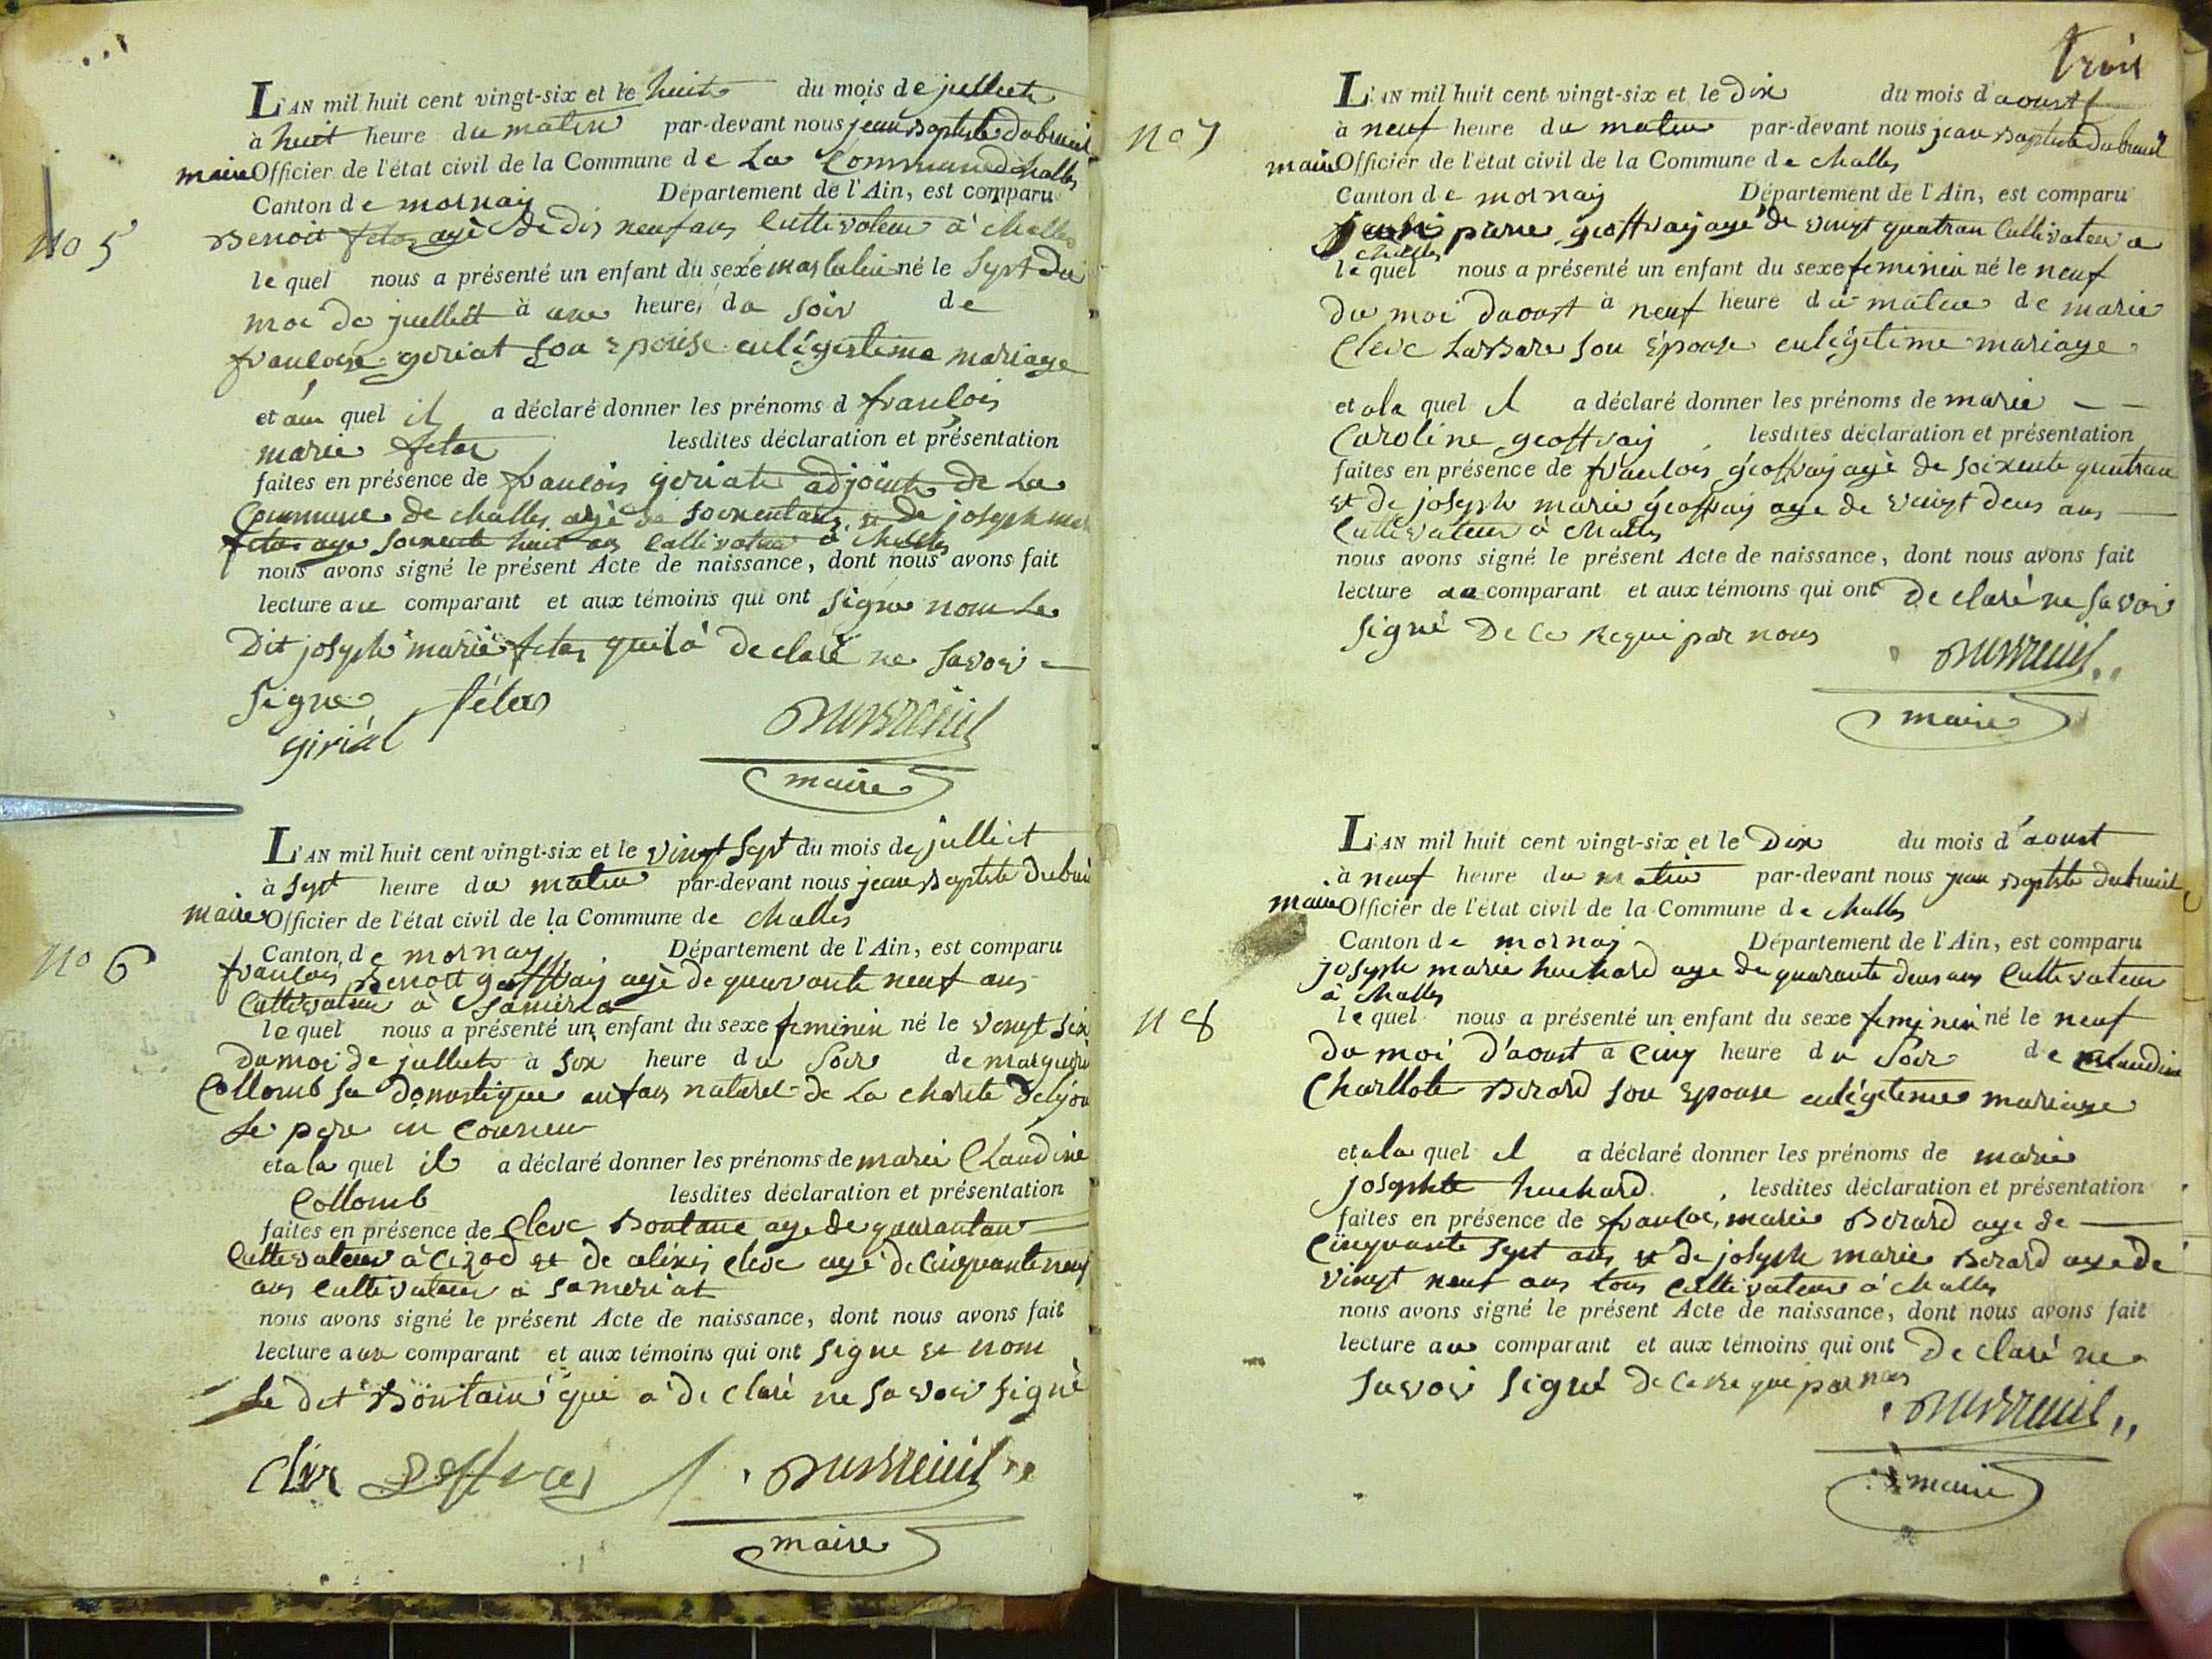 L'AN mil huit cent vingt-six et le huit du mois de juillete
à huit heure du matin par-devant nous jean Baptiste Dubreuil
maire Officier de l'état civil de la Commune de La Commune de Challes
Canton de mornay Département de l'Ain, est comparu
No 5
Benoit fetas agè de dis neuf ans Cultivateur à Challes
le quel nous a présenté un enfant du sexe masculin né le Sept du
moi de juillet à une heure, du soir de
francoise goriat son Epouse en légestime mariage
et au quel il a déclaré donner les prénoms d francois
marie fetas lesdites déclaration et présentation
faites en présence de francois goriate adjointe de La
Commune de challes agè de soixentans et de joseph mar
fetas age soixente huit ans Cultivateur à challes
nous avons signé le présent Acte de naissance, dont nous avons fait
lecture au comparant et aux témoins qui ont signe nom Le
Dit joseph marie fetas quil à declaré ne savoir
Signe fétas
giriat Dubreuil
maire
L'AN mil huit cent vingt-six et le vingt Sept du mois de julliet
à Sept heure du matin par-devant nous jean Baptiste Dubreui
maire Officier de l'état civil de la Commune de challes
No 6
Canton de mornay Département de l'Ain, est comparu
francois Benoit geoffray agè de quarante neuf ans
Cultivateur à Samériat
le quel nous a présenté un enfant du sexe feminin né le vengt six
du moi de jullete à six heure du Soir de margueri
Collomb sa domestique enfans naturel de La charité de lyon
Le pere in Conneu
et a la quel il a déclaré donner les prénoms de marie Claudine
Collomb lesdites déclaration et présentation
faites en présence de Cleve Bontane age de quarantan
Cultivateur à Cizod et de alixis Cleve agé de Cinquante neuf
ans Cultivateur à Sameriat
nous avons signé le présent Acte de naissance, dont nous avons fait
lecture aux comparant et aux témoins qui ont signe et nom
Le dit Bontain qui a déclaré ne savoir signè
Dubreuil
maire
trois
L'AN mil huit cent vingt-six et le Dix du mois d'aoust
No 7
à neuf heure du matin par-devant nous jean Baptiste Dubreuil
maire Officier de l'état civil de la Commune de challes
Canton de mornay Département de l'Ain, est comparu
pierre geoffray agé de vingt quatran Cultivateur a
challes
le quel nous a présenté un enfant du sexe feminin né le neuf
du moi daoust à neuf heure du matin de marie
Cleve Labbare son Épouse en légitime mariage
et ala quel il a déclaré donner les prénoms de marie
Caroline geoffray, lesdites déclaration et présentation
faites en présence de francois geoffray agè de soixente quatran
et de joseph marie geoffray age de vingt deus ans
Cultivateur à challes
nous avons signé le présent Acte de naissance, dont nous avons fait
lecture au comparant et aux témoins qui ont De claré ne savoir
signé De Ce Requi par nous
Dubreuil
maire
L'AN mil huit cent vingt-six et le Dix du mois d'aoust
à neuf heure du matin par-devant nous jean Baptiste Dubreuil
maire Officier de l'état civil de la Commune de challes
Canton de mornay Département de l'Ain, est comparu
joseph marie huchard age de quarante deus ans Cultivateur
à challes
N 8
le quel nous a présenté un enfant du sexe feminin né le neuf
du moi d'aoust a Cinq heure du Soir de Claudine
Charllote Berard son Epouse en légitime mariage
et ala quel il a déclaré donner les prénoms de marie
josephte huchard, lesdites déclaration et présentation
faites en présence de marie Berard age de
Cinquante Sept ans et de joseph marie Berard age de
vingt neuf ans tous Cultivateur à challes
nous avons signé le présent Acte de naissance, dont nous avons fait
lecture au comparant et aux témoins qui ont De claré ne
savoir signé De Ce Requi par nous
Dubreuil
maire